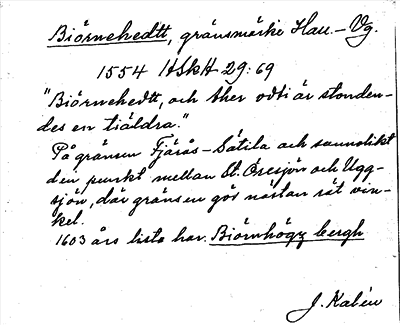 Biörnehedtt, gränsmärke Hall.-Vg.
1554 HSkH 29:69
"Biörnehedtt, och ther odti är stonden-
des en tiäldra."
På gränsen Fjärås-Sätila och sannolikt
den punkt mellan St. Öresjön och Ugg-
sjön, där gränsen gör nästan rät vin-
kel.
1603 års lista har Biörnhögz bergh
J. Kalén